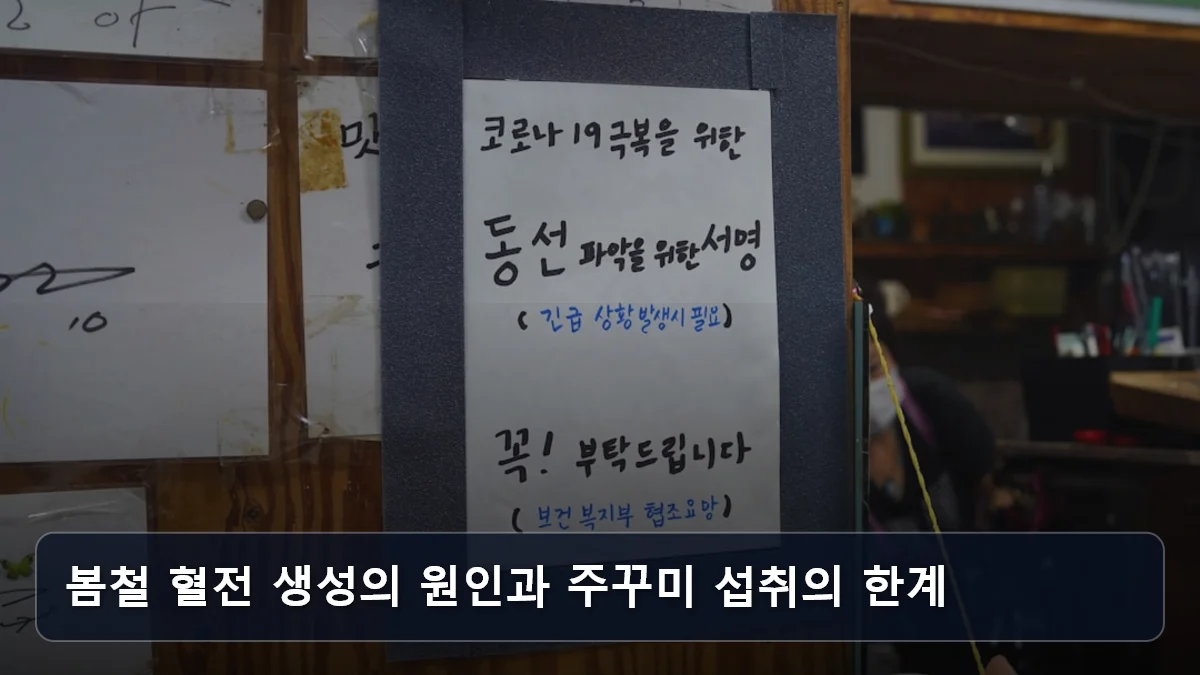 맛
10
코로나19 극복을 위한
동선 파악을 위한 서명
( 긴급 상황 발생시 필요)
꼭! 부탁드립니다
( 보건복지부 협조요망)
봄철 혈전 생성의 원인과 주꾸미 섭취의 한계